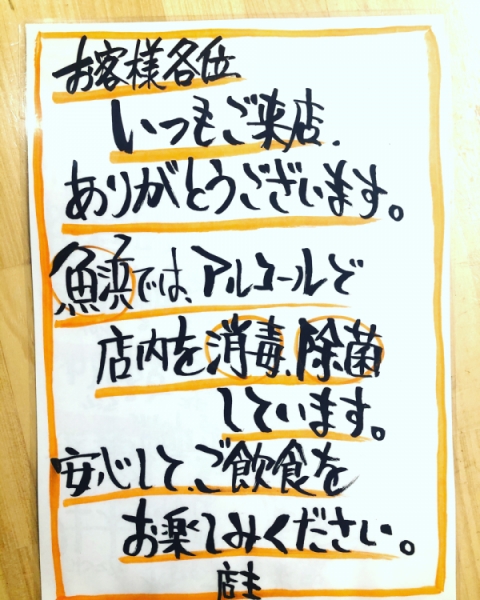 お客様各位
いつもご来店、
ありがとうございます。
魚浜では、アルコールで
店内を消毒、除菌
しています。
安心して、ご飲食を
お楽しみください。
店主